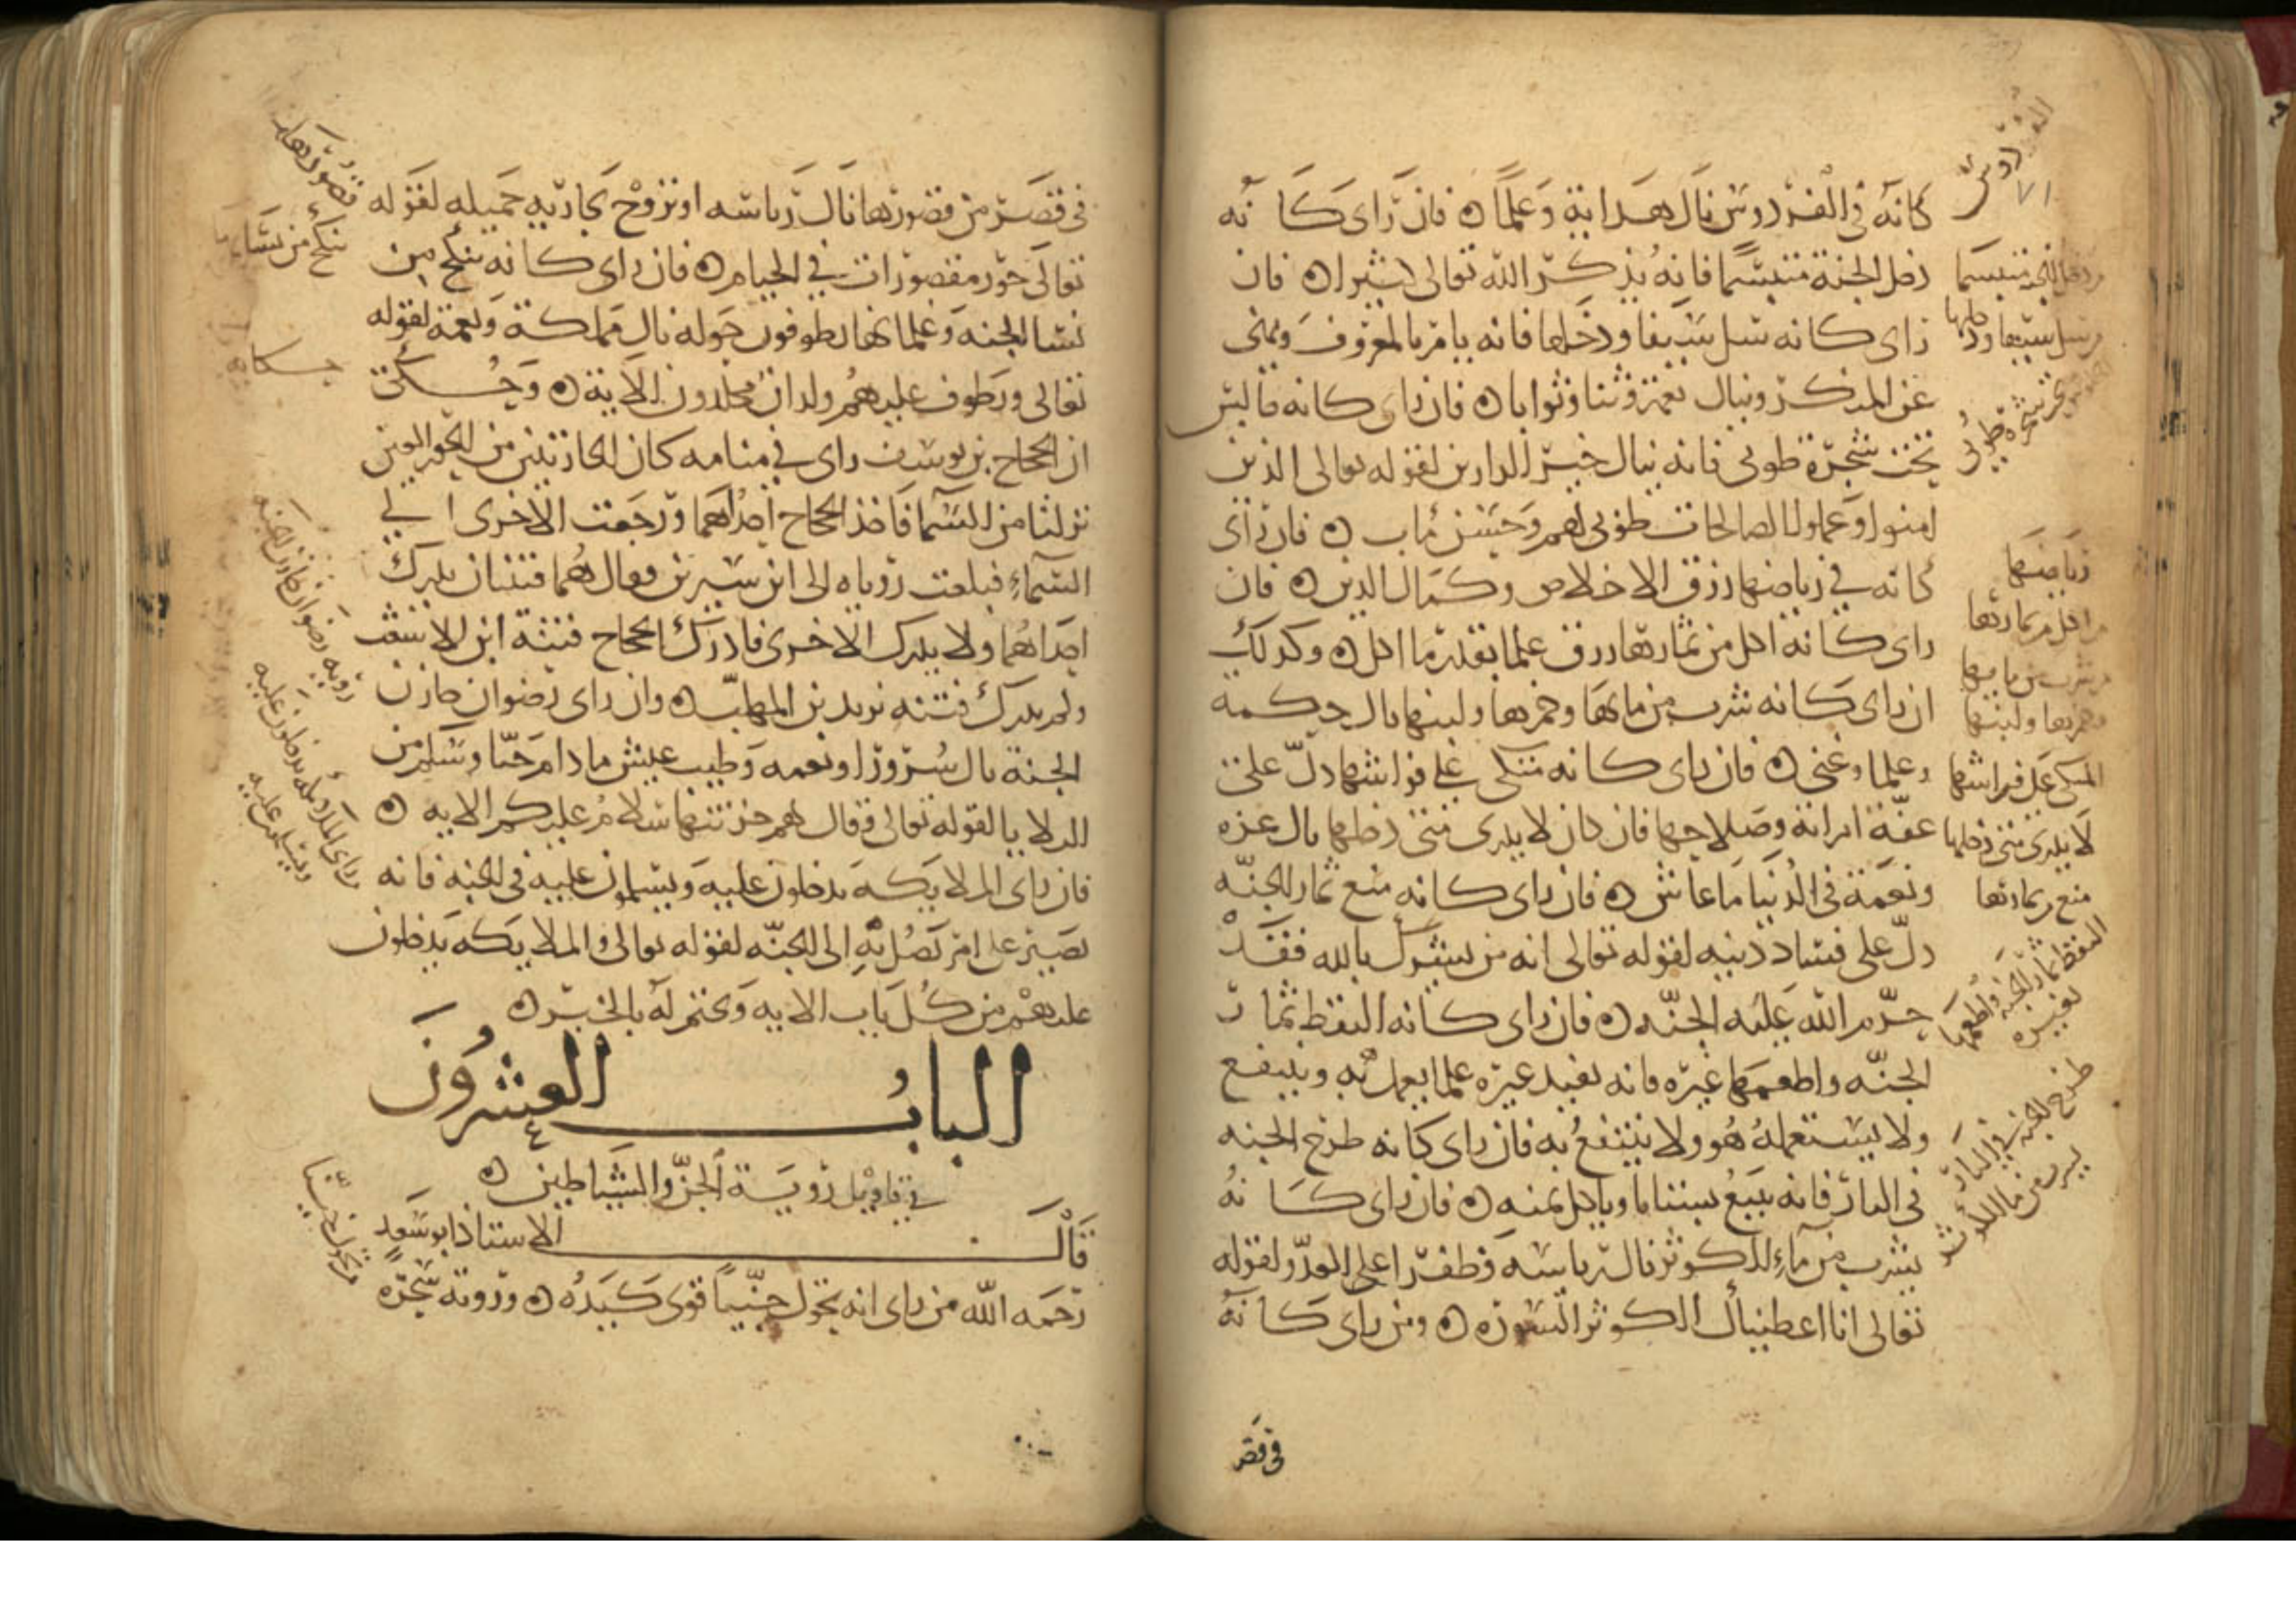 كانه في الفردوس نال هداية وعلما ه فان راى كانه
دخل الجنة متبسما فانه يذكر الله تعالى كثيرا ه فان
راى كانه سل سيفا ودخلها فانه يامر بالمعروف وينهى
عن المنكر وينال نعمة وثنا وثوابا ه فان راى كانه جالس
تحت شجرة طوبى فانه ينال خير الدارين لقوله تعالى الذين
امنوا وعملوا الصالحات طوبى لهم وحسن ماب ه فان راى
كانه في رياضها رزق الاخلاص وكمال الدين ه فان
راى كانه اكل من ثمارها رزق علما بقدر ما اكل ه وكذلك
ان راى كانه شرب من مايها وخمرها ولبنها نال حكمة
وعلما وغنى ه فان راى كانه متكى على فراشها دل على
عفة امراته وصلاحها فان كان لا يدرى متى دخلها نال عزه
ونعمة في الدنيا ما عاش ه فان راى كانه منع ثمار الجنة
دل على فساد دينه لقوله تعالى انه من يشرك بالله فقد
حرم الله عليه الجنة ه فان راى كانه التقط ثمار
الجنة واطعمها غيره فانه يفيد غيره علما يعمل به وينتفع
ولا يستعمله هو ولا ينتفع به فان راى كانه طرح الجنه
في النار فانه يبيع بستانا وياكل ثمنه ه فان راى كانه
يشرب من ماء الكوثر نال رياسه وظفرا على العدو لقوله
تعالى انا اعطيناك الكوثر السورة ه ومن راى كانه
في قصر
الفردوس
٧١
دخل الجنة متبسما
سل سيفا ودخلها
شجرة طوبى
رياضها
اكل من ثمارها
شرب من مايها
وخمرها ولبنها
المتكى على فراشها
لا يدرى متى دخلها
منع ثمارها
التقط ثمار الجنة واطعمها
غيره
طرح الجنة في النار
في قصر من قصورها نال رياسه او تزوج بجارية جميله لقوله
تعالى حور مقصورات في الخيام ه فان راى كانه ينكح من
نسا الجنه وغلمانها يطوفون حوله نال مملكة ونعمة لقوله
تعالى ويطوف عليهم ولدان مخلدون الاية ه وحكى
ان الحجاج بن يوسف راى في منامه كان جاريتين من الحور العين
نزلتا من السما فاخذ الحجاج احداهما ورجعت الاخرى الى
السماء فبلغت روياه الى ابن سيرين فقال هما فتنتان يدرك
احداهما ولا يدرك الاخرى فادرك الحجاج فتنة ابن الاشعث
ولم يدرك فتنه يزيد بن المهلب ه وان راى رضوان خازن
الجنة نال سرورا ونعمه وطيب عيش ما دام حيا وسلم من
البلايا لقوله تعالى وقال لهم خزنتها سلام عليكم الايه ه
فان راى الملايكة يدخلون عليه ويسلمون عليه في الجنه فانه
يصير على امر يصل به الى الجنه لقوله تعالى والملايكه يدخلون
عليهم من كل باب الايه ويختم له بالخير ه
الباب العشرون
في تاويل روية الجن والشياطين ه
قال الاستاذ ابو سعد
رحمه الله من راى انه تحول جنيا قوى كيده ه وروية سحرة
قصورها
ينكح من نسا
حكاية
روية رضوان خازن الجنة
راى الملايكة يدخلون عليه
ويسلمون عليه
من تحول جنيا